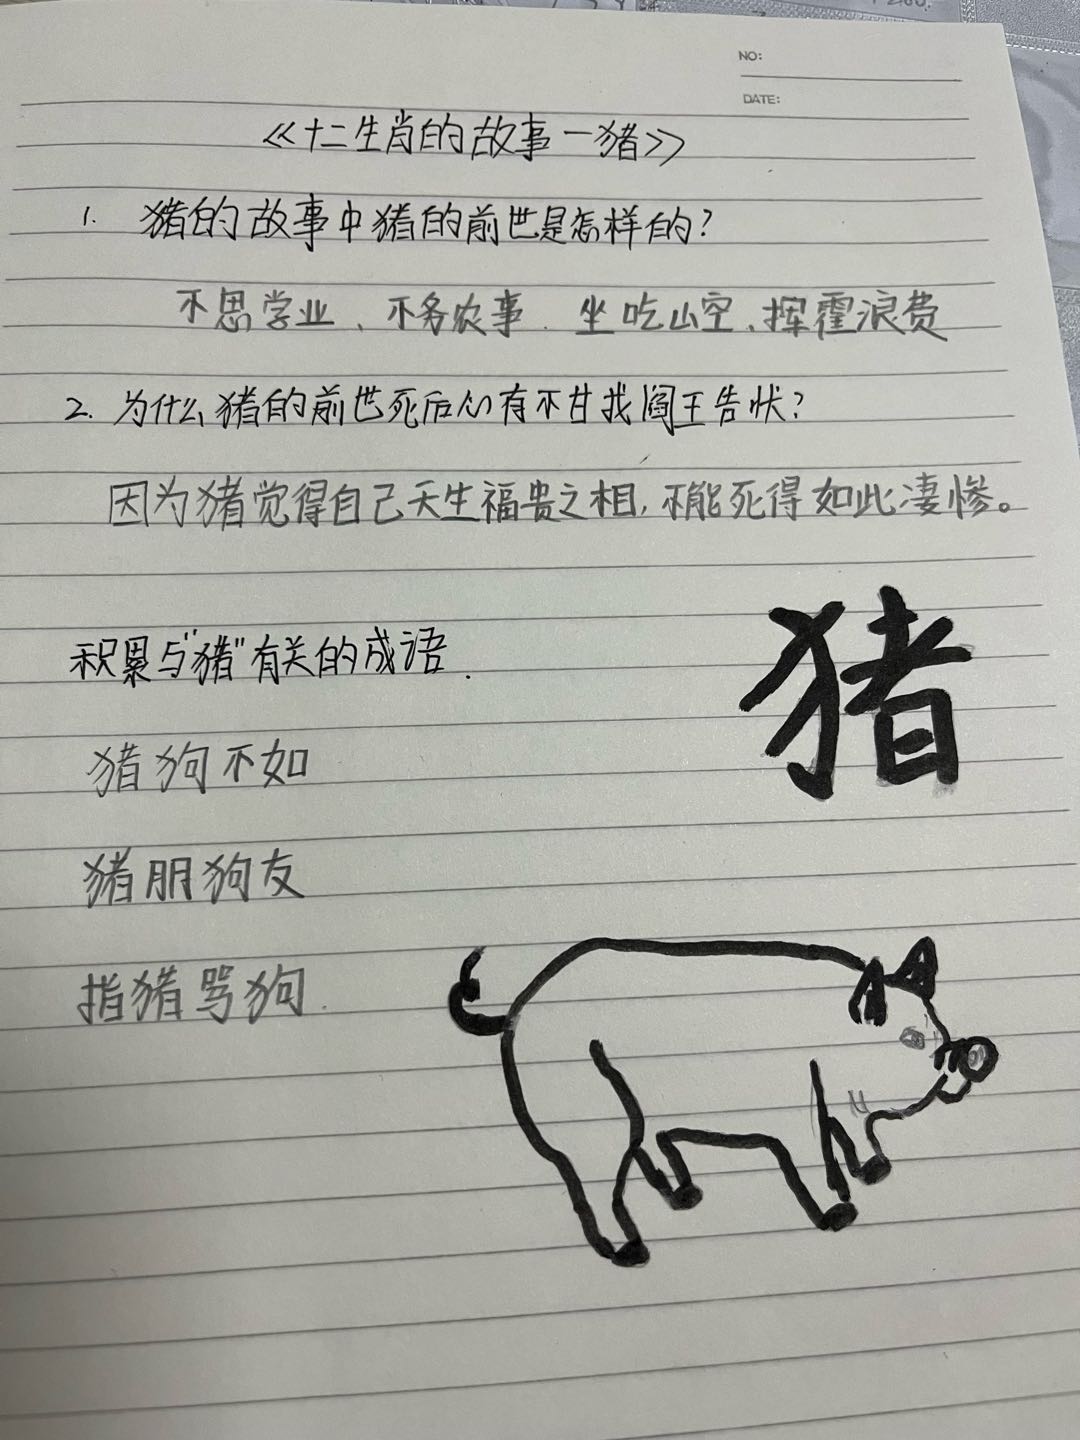 NO:
DATE:
《十二生肖的故事一猪》
1. 猪的故事中猪的前世是怎样的?
不思学业、不务农事.坐吃山空、挥霍浪费
2. 为什么猪的前世死后心有不甘找阎王告状?
因为猪觉得自己天生福贵之相,不能死得如此凄惨。
积累与"猪"有关的成语.
猪
猪狗不如
猪朋狗友
指猪骂狗.